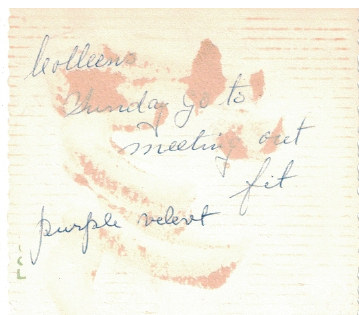 Colleens
Sunday go to
meeting out
fit
purple velevt